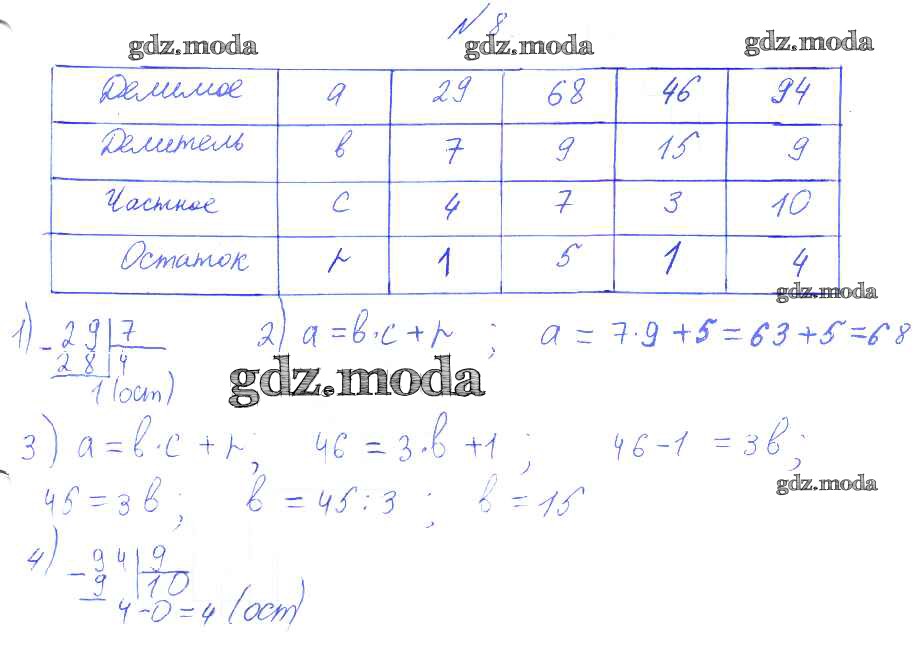 № 8
gdz.moda gdz.moda gdz.moda
Делимое a 29 68 46 94
Делитель в 7 9 15 9
Частное c 4 7 3 10
Остаток r 1 5 1 4
gdz.moda
1) - 29 | 7 2) a = в·c + r ; a = 7·9 + 5 = 63 + 5 = 68
28 | 4
1 (ост)
gdz.moda
3) a = в·c + r; 46 = 3·в + 1 ; 46 - 1 = 3в;
gdz.moda
45 = 3в ; в = 45 : 3 ; в = 15
4) - 94 | 9
9 | 10
4 - 0 = 4 (ост)